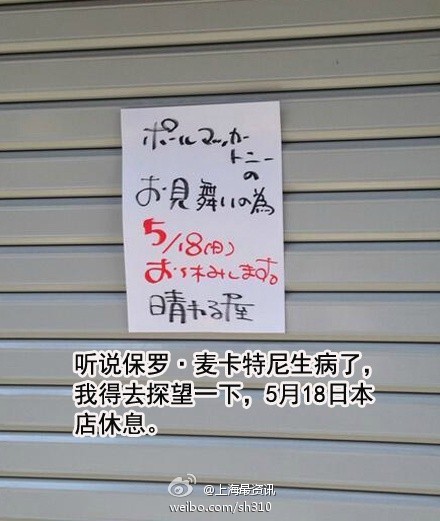 ポールマッカー
トニーの
お見舞いの為
5/18(日)
お休みします。
晴れる屋
听说保罗·麦卡特尼生病了，
我得去探望一下，5月18日本
店休息。
@上海最资讯
weibo.com/sh310